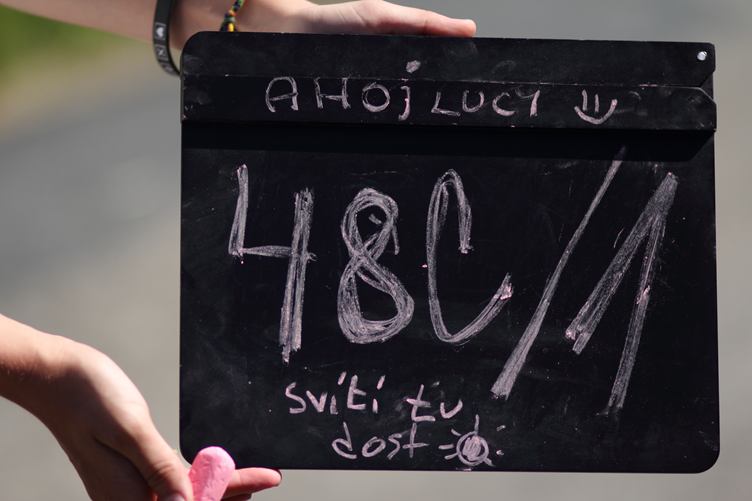 AHOJ LUCY
48C/1
svítí tu
dost